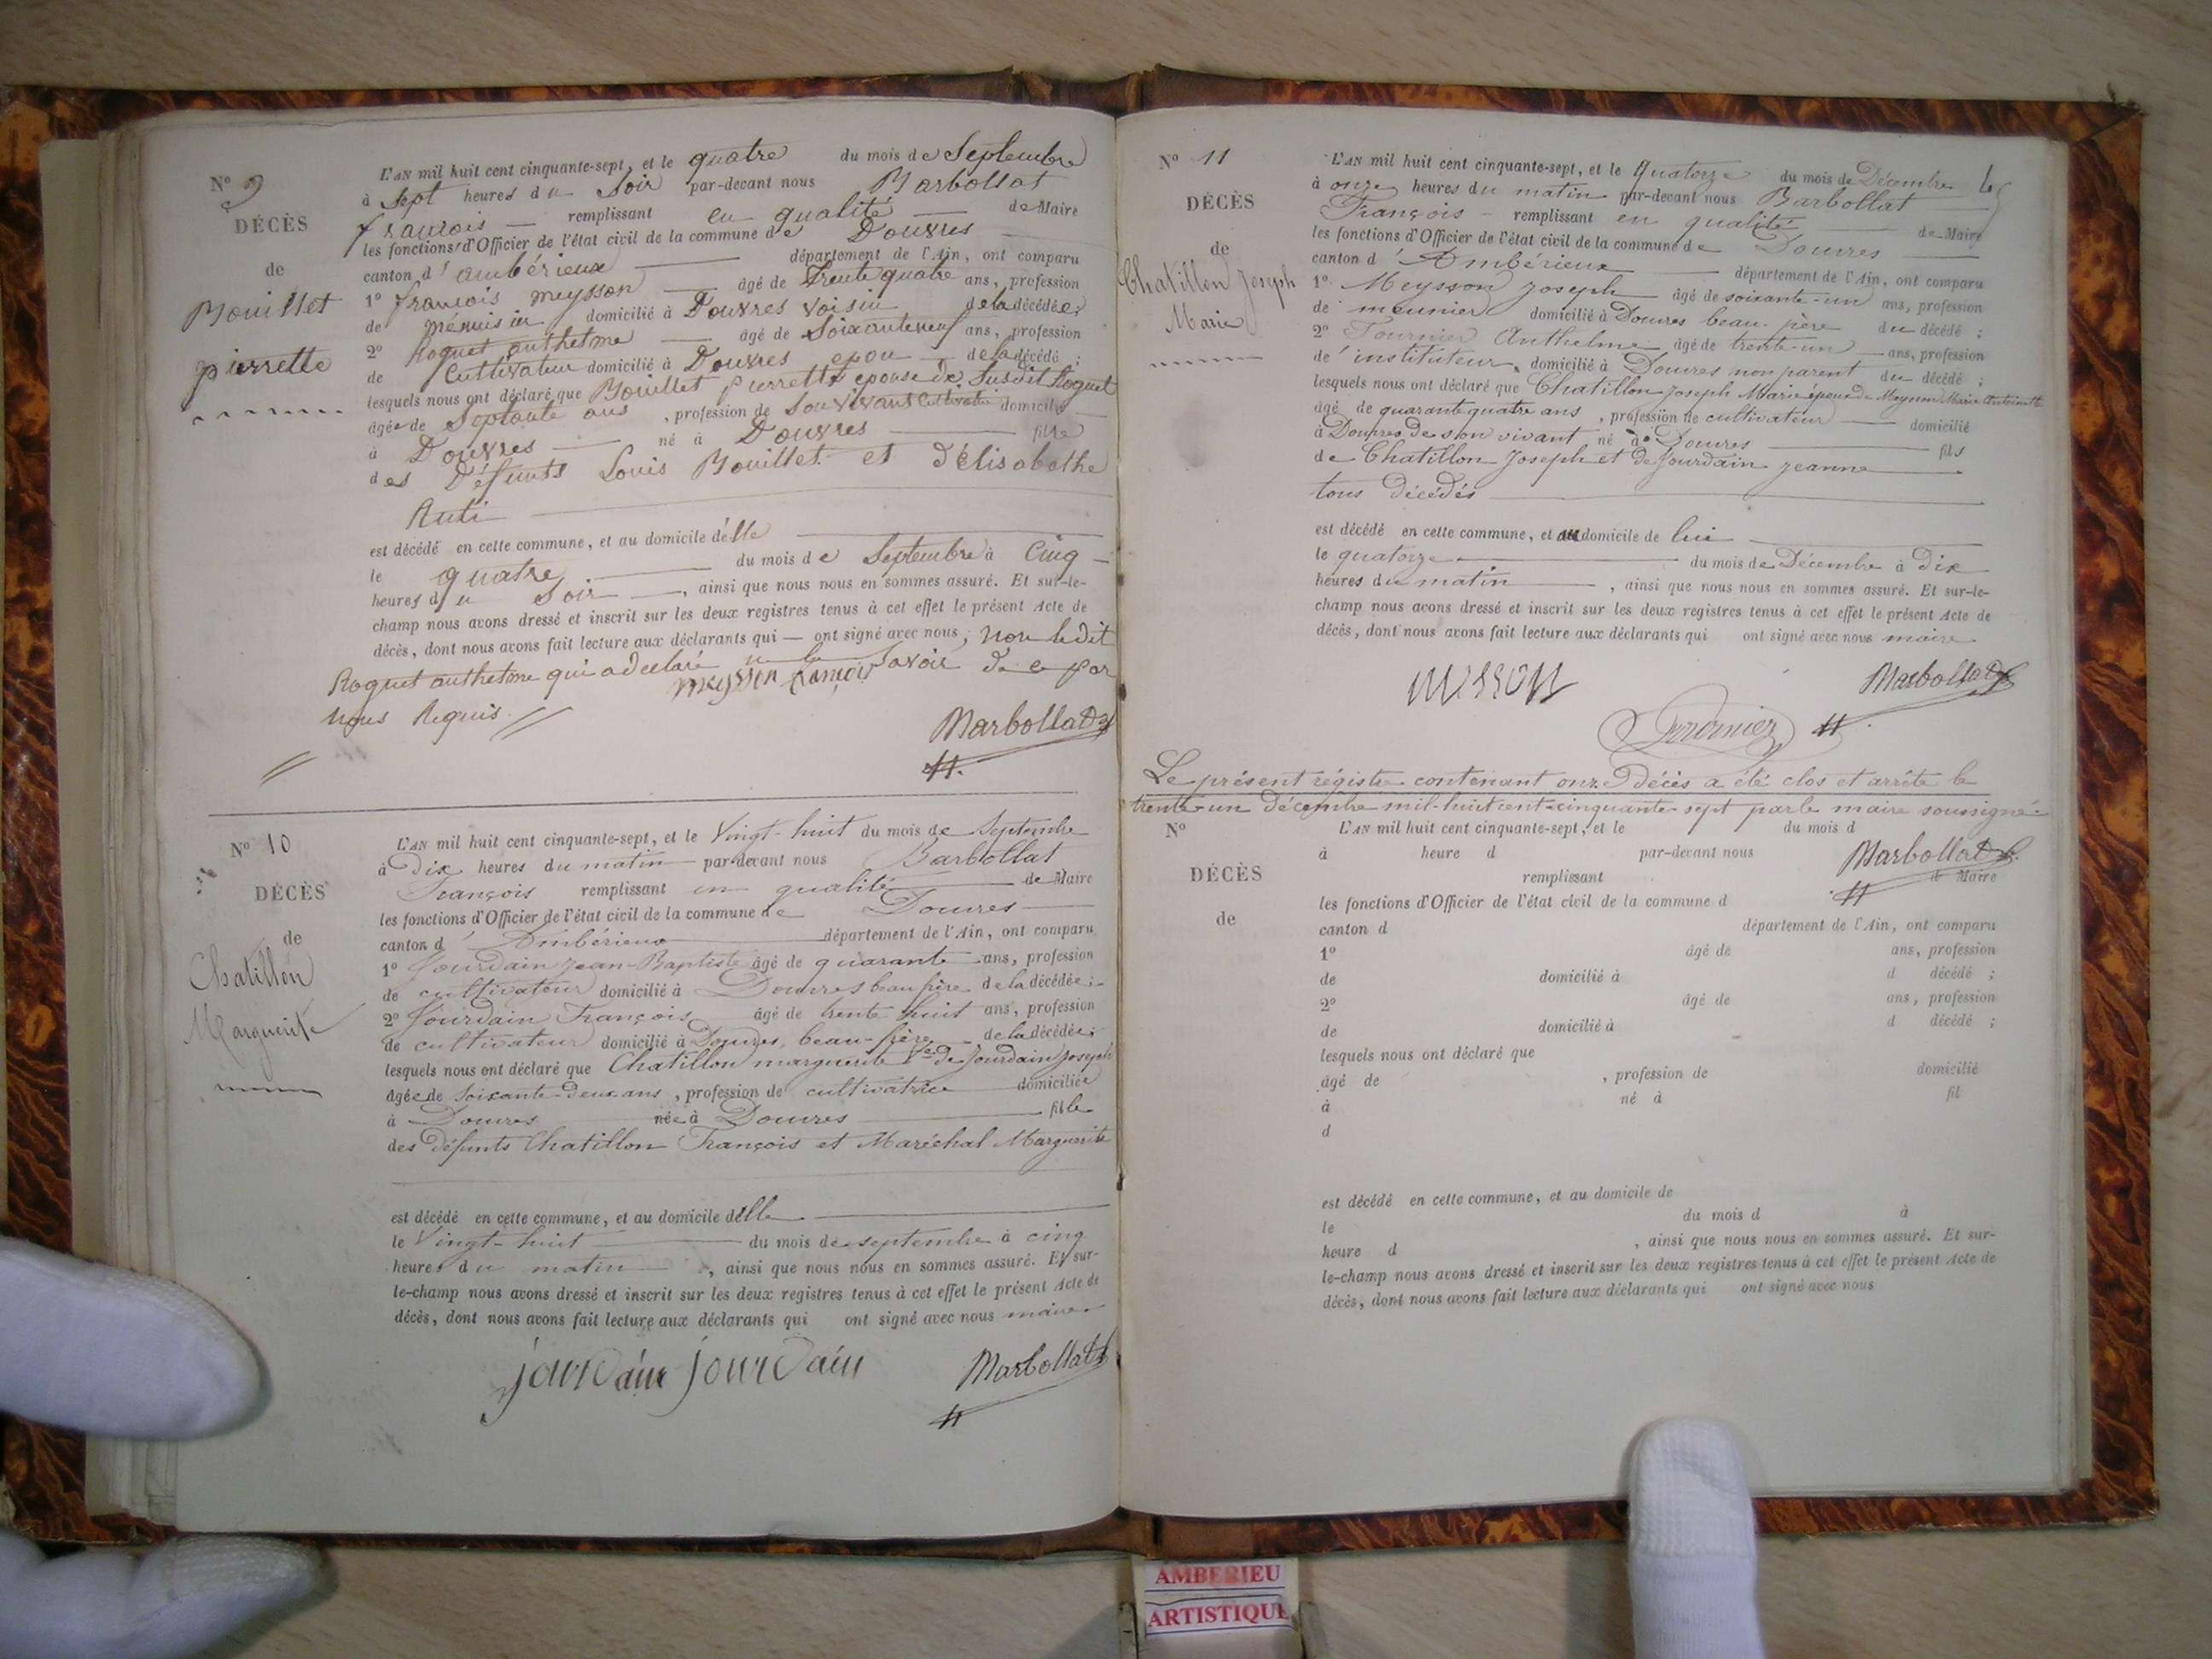 N° 9
DÉCÈS
de
Bouillet
pierrette
L'AN mil huit cent cinquante-sept, et le quatre du mois de Septembre
à Sept heures du Soir par-devant nous Barbollat
francois remplissant en qualité de Maire
les fonctions d'Officier de l'état civil de la commune de Douvres
canton d'ambérieux département de l'Ain, ont comparu
1° francois meysson âgé de trente quatre ans, profession
de menuisier domicilié à Douvres voisin de la décédée;
2° Roguet anthelme âgé de Soixante neuf ans, profession
de Cultivateur domicilié à Douvres epou de la décédé;
lesquels nous ont déclaré que Bouillet pierrette epouse de Susdit Roguet
âgée de Septante ans, profession de Son vivant Cultivatrice domicilié
à Douvres né à Douvres fille
des Défunts Louis Bouillet et d'élisabethe
Ruti
est décédé en cette commune, et au domicile d'elle
le quatre du mois de Septembre à Cinq
heures du Soir, ainsi que nous nous en sommes assuré. Et sur-le-
champ nous avons dressé et inscrit sur les deux registres tenus à cet effet le présent Acte de
décès, dont nous avons fait lecture aux déclarants qui — ont signé avec nous, non ledit
Roguet anthelme qui a déclaré ne le Savoir de ce par
nous Requis
meyssen francois
Barbollat
N° 10
DÉCÈS
de
Chatillon
Marguerite
L'AN mil huit cent cinquante-sept, et le Vingt-huit du mois de Septembre
à Dix heures du matin par-devant nous Barbollat
François remplissant en qualité de Maire
les fonctions d'Officier de l'état civil de la commune de Douvres
canton d'Ambérieux département de l'Ain, ont comparu
1° Jourdain Jean-Baptiste âgé de quarante ans, profession
de cultivateur domicilié à Douvres beau frère de la décédée;
2° Jourdain François âgé de trente huit ans, profession
de cultivateur domicilié à Douvres, beau-frère de la décédée;
lesquels nous ont déclaré que Chatillon marguerite Ve de Jourdain Joseph
âgée de Soixante-Deux ans, profession de cultivatrice domiciliée
à Douvres née à Douvres fille
des Défunts Chatillon François et Maréchal Marguerite
est décédé en cette commune, et au domicile d'elle
le Vingt-huit du mois de septembre à cinq
heures du matin, ainsi que nous nous en sommes assuré. Et sur-
le-champ nous avons dressé et inscrit sur les deux registres tenus à cet effet le présent Acte de
décès, dont nous avons fait lecture aux déclarants qui ont signé avec nous maire
jourdain jourdain Barbollat
N° 11
DÉCÈS
de
Chatillon Joseph
Marie
L'AN mil huit cent cinquante-sept, et le Quatorze du mois de Décembre
à onze heures du matin par-devant nous Barbollat
François remplissant en qualité de Maire
les fonctions d'Officier de l'état civil de la commune de Douvres
canton d'Ambérieux département de l'Ain, ont comparu
1° Meysson Joseph âgé de soixante-un ans, profession
de meunier domicilié à Douvres beau-père du décédé;
2° Fournier Anthelme âgé de trente-un ans, profession
d'instituteur domicilié à Douvres non parent du décédé;
lesquels nous ont déclaré que Chatillon Joseph Marie époux de Meysson Marie Antoinette
âgé de quarante quatre ans, profession de cultivateur domicilié
à Douvres de son vivant né à Douvres fils
de Chatillon Joseph et de Jourdain jeanne
tous décédés
est décédé en cette commune, et au domicile de lui
le quatorze du mois de Décembre à Dix
heures du matin, ainsi que nous nous en sommes assuré. Et sur-le-
champ nous avons dressé et inscrit sur les deux registres tenus à cet effet le présent Acte de
décès, dont nous avons fait lecture aux déclarants qui ont signé avec nous maire
Barbollat
Fournier
Le présent régistre contenant onze Décès a été clos et arrêté le
trente-un Décembre mil-huit cent-cinquante-sept par le maire soussigné
N°
DÉCÈS
de
L'AN mil huit cent cinquante-sept, et le du mois d
à heure d par-devant nous Barbollat
remplissant de Maire
les fonctions d'Officier de l'état civil de la commune d
canton d département de l'Ain, ont comparu
1° âgé de ans, profession
de domicilié à d décédé;
2° âgé de ans, profession
de domicilié à d décédé;
lesquels nous ont déclaré que
âgé de, profession de domicilié
à né à fil
d
est décédé en cette commune, et au domicile de
le du mois d à
heure d, ainsi que nous nous en sommes assuré. Et sur-
le-champ nous avons dressé et inscrit sur les deux registres tenus à cet effet le présent Acte de
décès, dont nous avons fait lecture aux déclarants qui ont signé avec nous
AMBERIEU
ARTISTIQUE